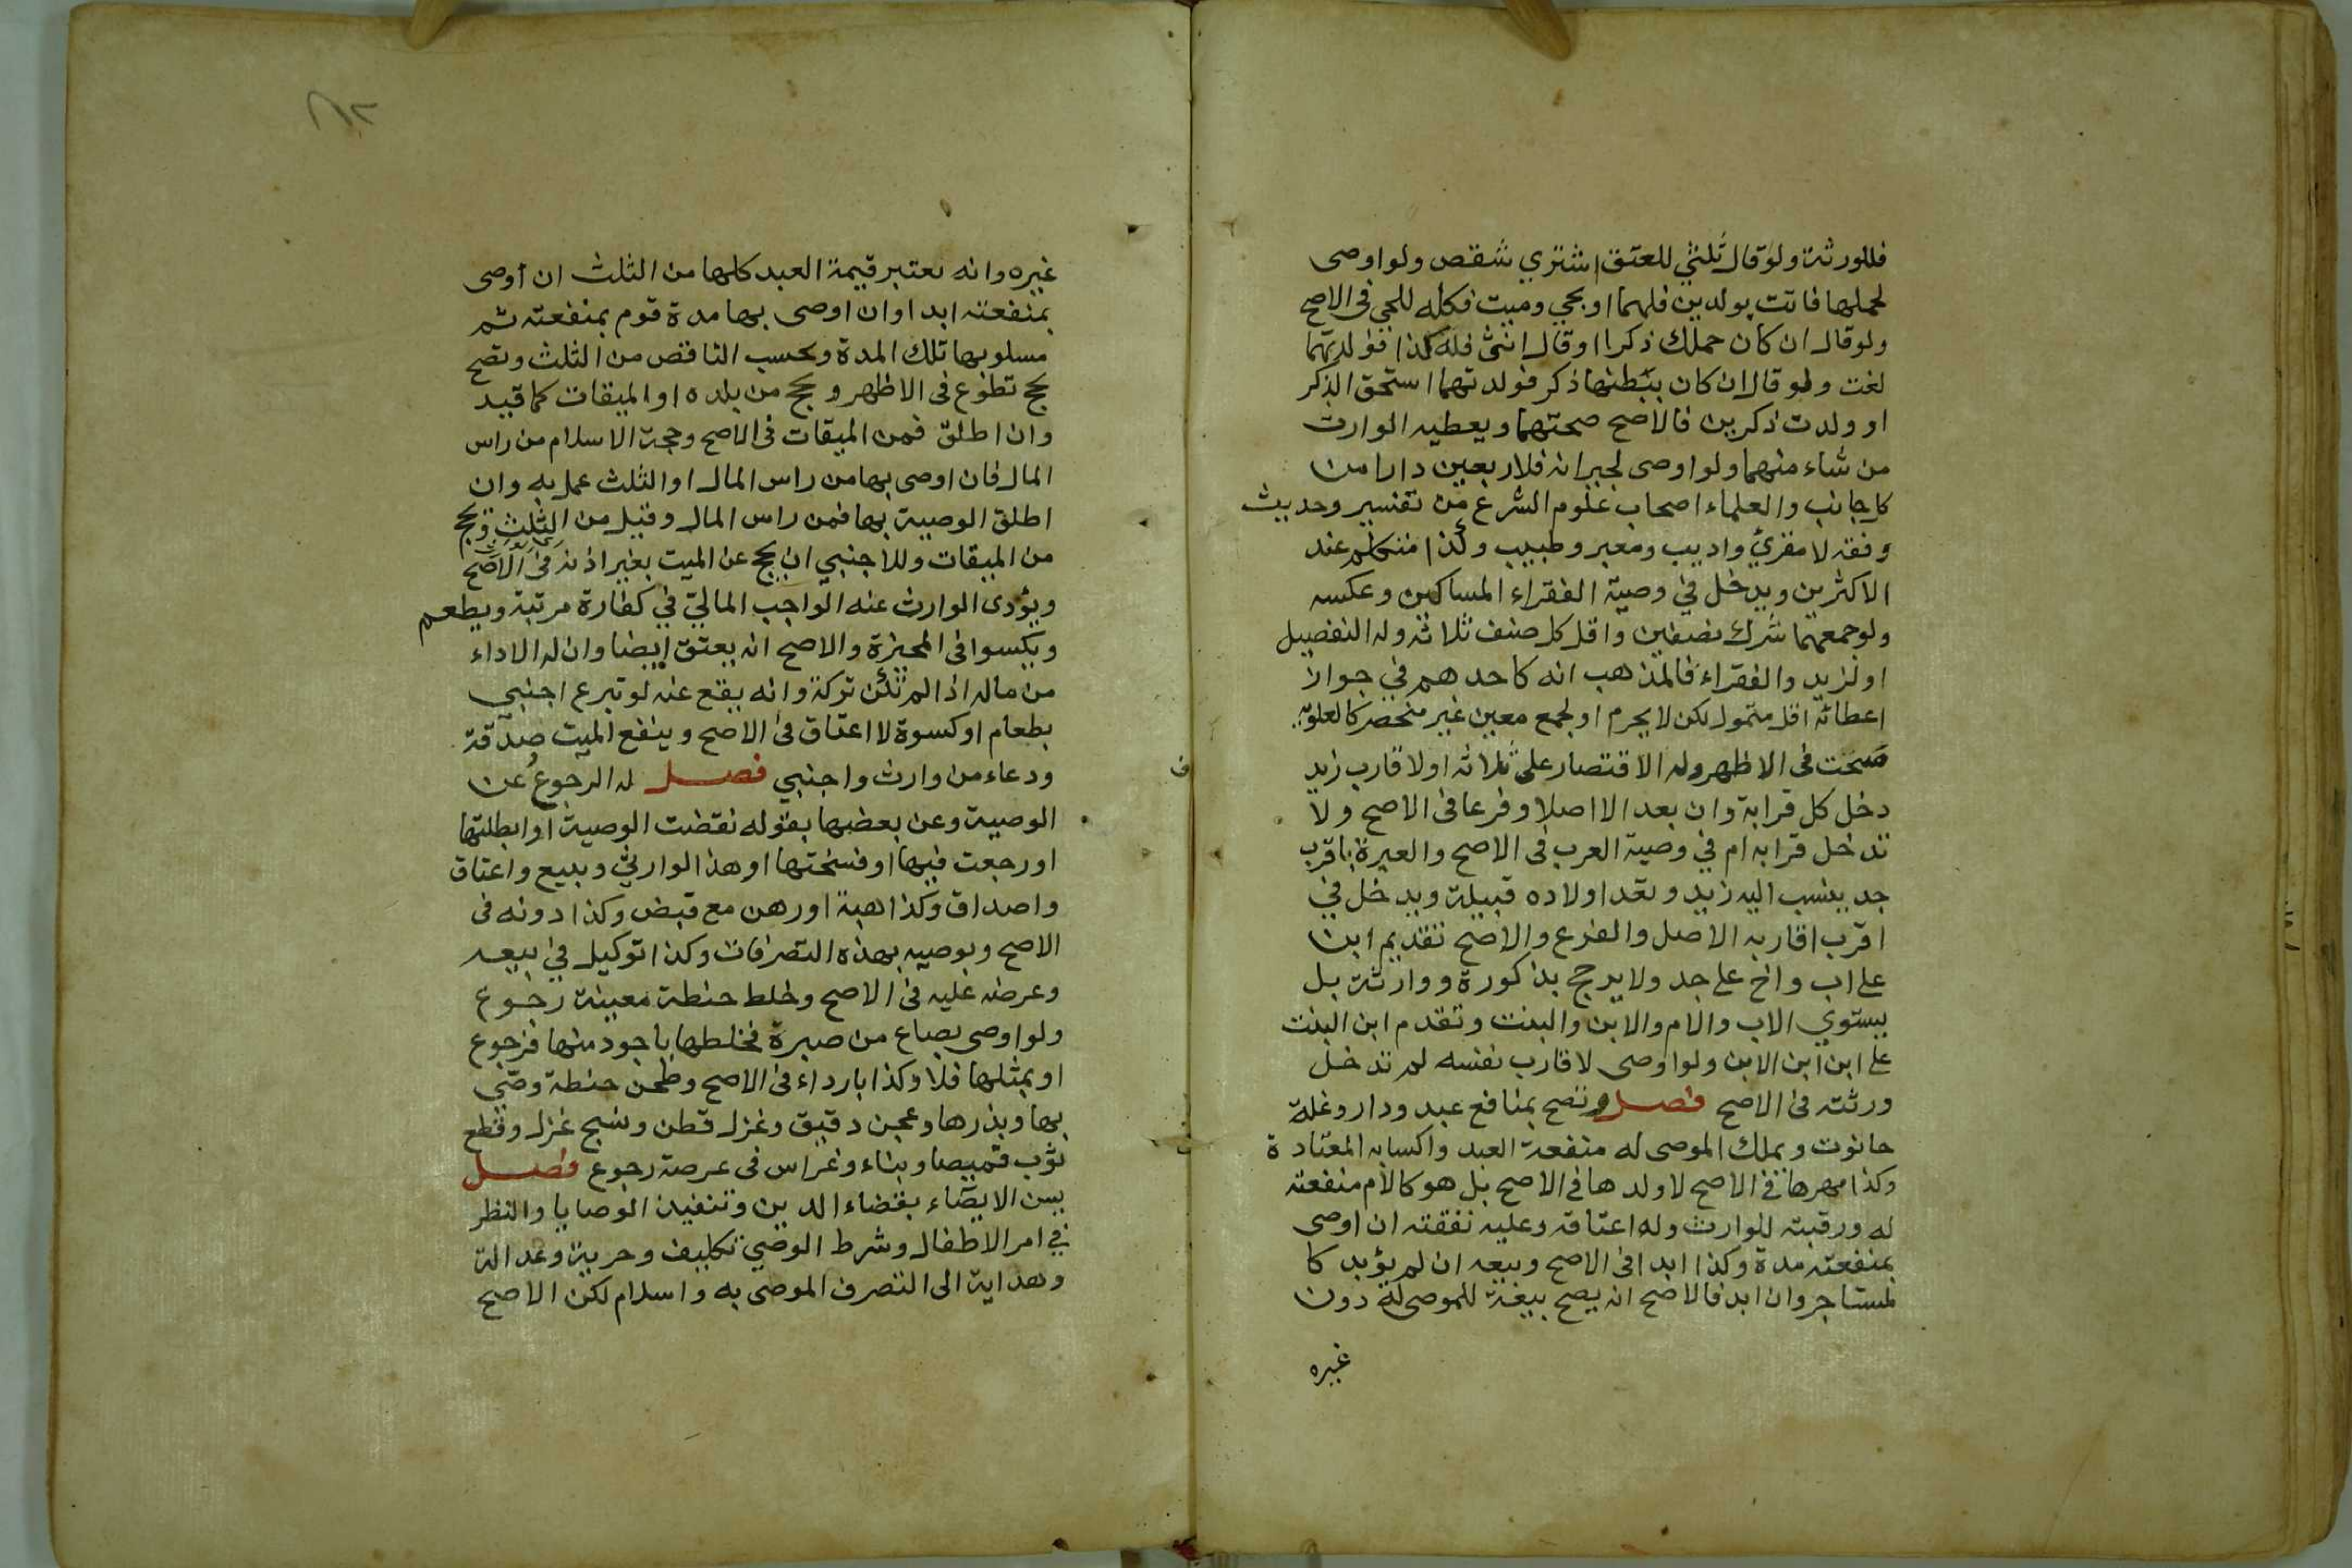 فللورثة ولو قال ثلثي للعتق اشتري شقص ولو اوصى
لحملها فاتت بولدين فلهما او بحي وميت فكله للحي في الاصح
ولو قال ان كان حملك ذكرا او قال انثى فله كذا فولدتهما
لغت ولو قال ان كان ببطنها ذكر فولدتهما استحق الذكر
او ولدت ذكرين فالاصح صحتها ويعطيه الوارث
من شاء منهما ولو اوصى لجيرانه فلاربعين دارا من
كل جانب والعلماء اصحاب علوم الشرع من تفسير وحديث
وفقه لا مقرئ واديب ومعبر وطبيب وكذا متكلم عند
الاكثرين ويدخل في وصية الفقراء المساكين وعكسه
ولو جمعهما شرك نصفين واقل كل صنف ثلاثة وله التفضيل
او لزيد والفقراء فالمذهب انه كاحدهم في جواز
اعطائه اقل متمول لكن لا يحرم او لجمع معين غير منحصر كالعلوية
صحت في الاظهر وله الاقتصار على ثلاثة او لاقارب زيد
دخل كل قرابة وان بعد الا اصلا وفرعا في الاصح ولا
تدخل قرابه ام في وصية العرب في الاصح والعبرة باقرب
جد ينسب اليه زيد وتعد اولاده قبيلة ويدخل في
اقرب اقاربه الاصل والفرع والاصح تقديم ابن
على اب واخ على جد ولا يرجح بذكورة ووارثة بل
يستوي الاب والام والابن والبنت وتقدم ابن البنت
على ابن ابن الابن ولو اوصى لاقارب نفسه لم تدخل
ورثته في الاصح فصل وتصح بمنافع عبد ودار وغلة
حانوت ويملك الموصى له منفعة العبد واكسابه المعتادة
وكذا مهرها في الاصح لا ولدها في الاصح بل هو كالام منفعته
له ورقبته للوارث وله اعتاقه وعليه نفقته ان اوصى
بمنفعته مدة وكذا ابدا في الاصح وبيعه ان لم يؤبد كا
لمستاجر وان ابد فالاصح انه يصح بيعه للموصى له دون
غيره
غيره وانه يعتبر قيمة العبد كلها من الثلث ان اوصى
بمنفعته ابدا وان اوصى بها مدة قوم بمنفعته ثم
مسلوبها تلك المدة ويحسب الناقص من الثلث وتصح
بحج تطوع في الاظهر ويحج من بلده او الميقات كما قيد
وان اطلق فمن الميقات في الاصح وحجة الاسلام من راس
المال فان اوصى بها من راس المال او الثلث عمل به وان
اطلق الوصية بها فمن راس المال وقيل من الثلث ويحج
من الميقات وللاجنبي ان يحج عن الميت بغير اذنه في الاصح
ويؤدى الوارث عنه الواجب المالي في كفارة مرتبة ويطعم
ويكسوا في المخيرة والاصح انه يعتق ايضا وان له الاداء
من ماله اذا لم تكن تركة وانه يقع عنه لو تبرع اجنبي
بطعام او كسوة لا اعتاق في الاصح وينفع الميت صدقة
ودعاء من وارث واجنبي فصل له الرجوع عن
الوصية وعن بعضها بقوله نقضت الوصية او ابطلتها
او رجعت فيها او فسختها او هذا لوارثي وببيع واعتاق
واصداق وكذا هبة او رهن مع قبض وكذا دونه في
الاصح وبوصيه بهذه التصرفات وكذا توكيل في بيعه
وعرضه عليه في الاصح وخلط حنطة معينة رجوع
ولو اوصى بصاع من صبرة فخلطها باجود منها فرجوع
او بمثلها فلا وكذا باردا في الاصح وطحن حنطة وصى
بها وبذرها وعجن دقيق وغزل قطن ونسج غزل وقطع
ثوب قميصا وبناء وغراس في عرصة رجوع فصل
يسن الايصاء بقضاء الدين وتنفيذ الوصايا والنظر
في امر الاطفال وشرط الوصي تكليف وحرية وعدالة
وهداية الى التصرف الموصى به واسلام لكن الاصح